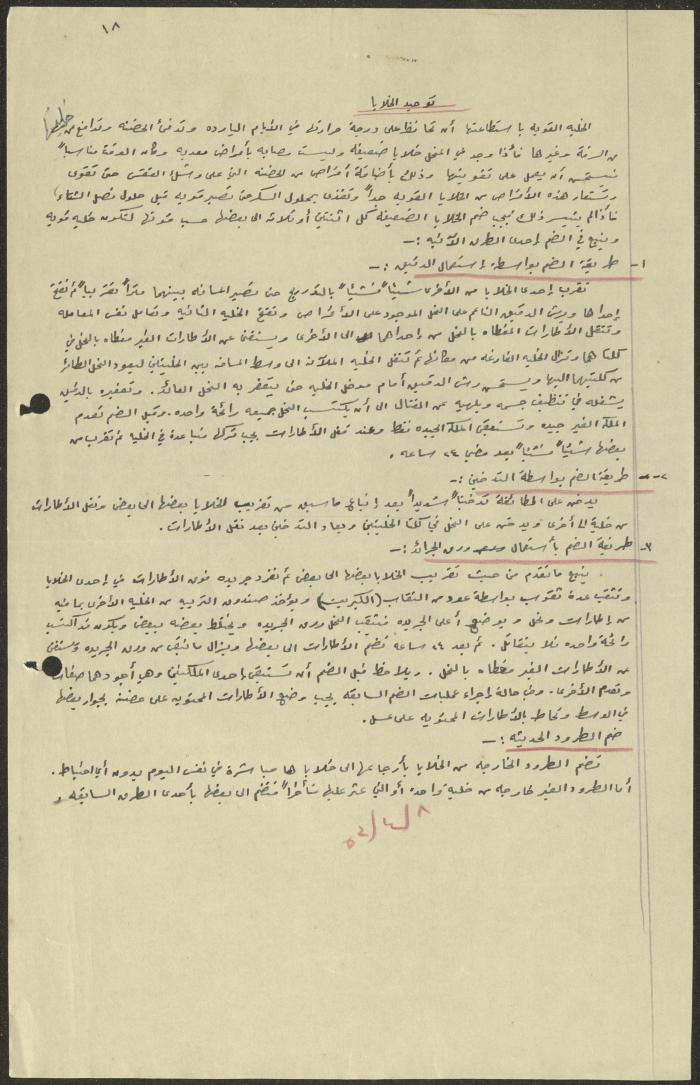 ١٨
توحيد الخلايا
الخليه القويه باستطاعتها أن تحافظ على درجة حرارتها في الأيام البارده وتدفئ الحضنه وتدافع عن خليتها
من السرقة وغيرها فأذا وجد في المنحل خلايا ضعيفه وليست مصابه بأمراض معديه وكان الوقت مناسباً
فيستحسن أن يعمل على تقويتها وذلك بأضافة أقراص من الحضنه التي على وشك الفقس حتى تقوى
وتستعار هذه الأقراص من الخلايا القويه جداً وتغذى بمحلول السكر حتى تصير قويه قبل حلول فصل الشتاء
فأذا لم يتيسر ذلك فيجب ضم الخلايا الضعيفه كل اثنتين أو ثلاثه الى بعضها حسب قوتها لتكون خليه قويه
ويتبع في الضم إحدى الطرق الآتيه :ـ
١ـ طريقة الضم بواسطة إستعمال الدقيق :ـ
تقرب إحدى الخلايا من الأخرى شيئاً فشيئاً بالتدريج حتى تصير المسافه بينهما متراً تقريباً ثم تفتح
إحداها ويرش الدقيق الناعم على النحل الموجود على الأقراص وتفتح الخليه الثانيه وتعامل نفس المعامله
وتنتقل الأطارات المغطاه بالنحل من إحداهما الى الأخرى ويستغنى عن الأطارات الغير مغطاه بالنحل في
كلتاهما وتزال الخليه الفارغه من مكانها ثم تنقل الخليه الملآنه الى وسط المسافه بين الخليتين ليعود النحل الطائر
من كلتيهما اليها ويستحسن رش الدقيق أمام مدخل الخليه حتى يتعفر به النحل العائد . وتعفيره بالدقيق
يشغله في تنظيف جسمه ويلهيه عن القتال الى أن يكتسب النحل جميعه رائحة واحده . وقبل الضم تعدم
الملكة الغير جيده وتستبقى الملكة الجيده فقط وعند نقل الأطارات يجب تركها متباعدة في الخليه ثم تقرب من
بعضها شيئاً فشيئاً بعد مضي ٢٤ ساعه .
٢ـ طريقة الضم بواسطة التدخين :ـ
يدخن على الطائفة تدخيناً شديداً بعد إتباع ما سبق من تقريب الخلايا بعضها الى بعض ونقل الأطارات
من خلية الى أخرى ويدخن على النحل في كلتا الخليتين ويعاد التدخين بعد نقل الأطارات .
٣ـ طريقة الضم بأستعمال ورق الجرائد :ـ
يتبع ما تقدم من حيث تقريب الخلايا بعضها الى بعض ثم تفرد جريده فوق الأطارات في إحدى الخلايا
وتثقب عدة ثقوب بواسطة عود من الثقاب (الكبريت) ويؤخذ صندوق التربيه من الخليه الأخرى بما فيه
من إطارات ونحل ويوضع أعلى الجريده فيثقب النحل ورق الجريده ويختلط بعضه ببعض ويكون قد اكتسب
رائحة واحده فلا يتقاتل . ثم بعد ٢٤ ساعه تضم الأطارات الى بعضها ويزال ما تبقى من ورق الجريده ويستغنى
عن الأطارات الغير مغطاه بالنحل . ويلاحظ قبل الضم أن تستبقى إحدى الملكتين وهي أجودها صفات
وتعدم الأخرى . وفي حالة إجراء عمليات الضم السابقه يجب وضع الأطارات المحتويه على حضنه بجوار بعضها
في الوسط وتحاط بالأطارات المحتويه على عسل .
ضم الطرود الحديثه :ـ
تضم الطرود الخارجه من الخلايا بأرجاعها الى خلاياها مباشرة في نفس اليوم بدون أي احتياط .
أما الطرود الغير خارجه من خلية واحدة أو التي عثر عليها متأخراً فتضم الى بعضها بأحدى الطرق السابقه
٨/٤/٥٢